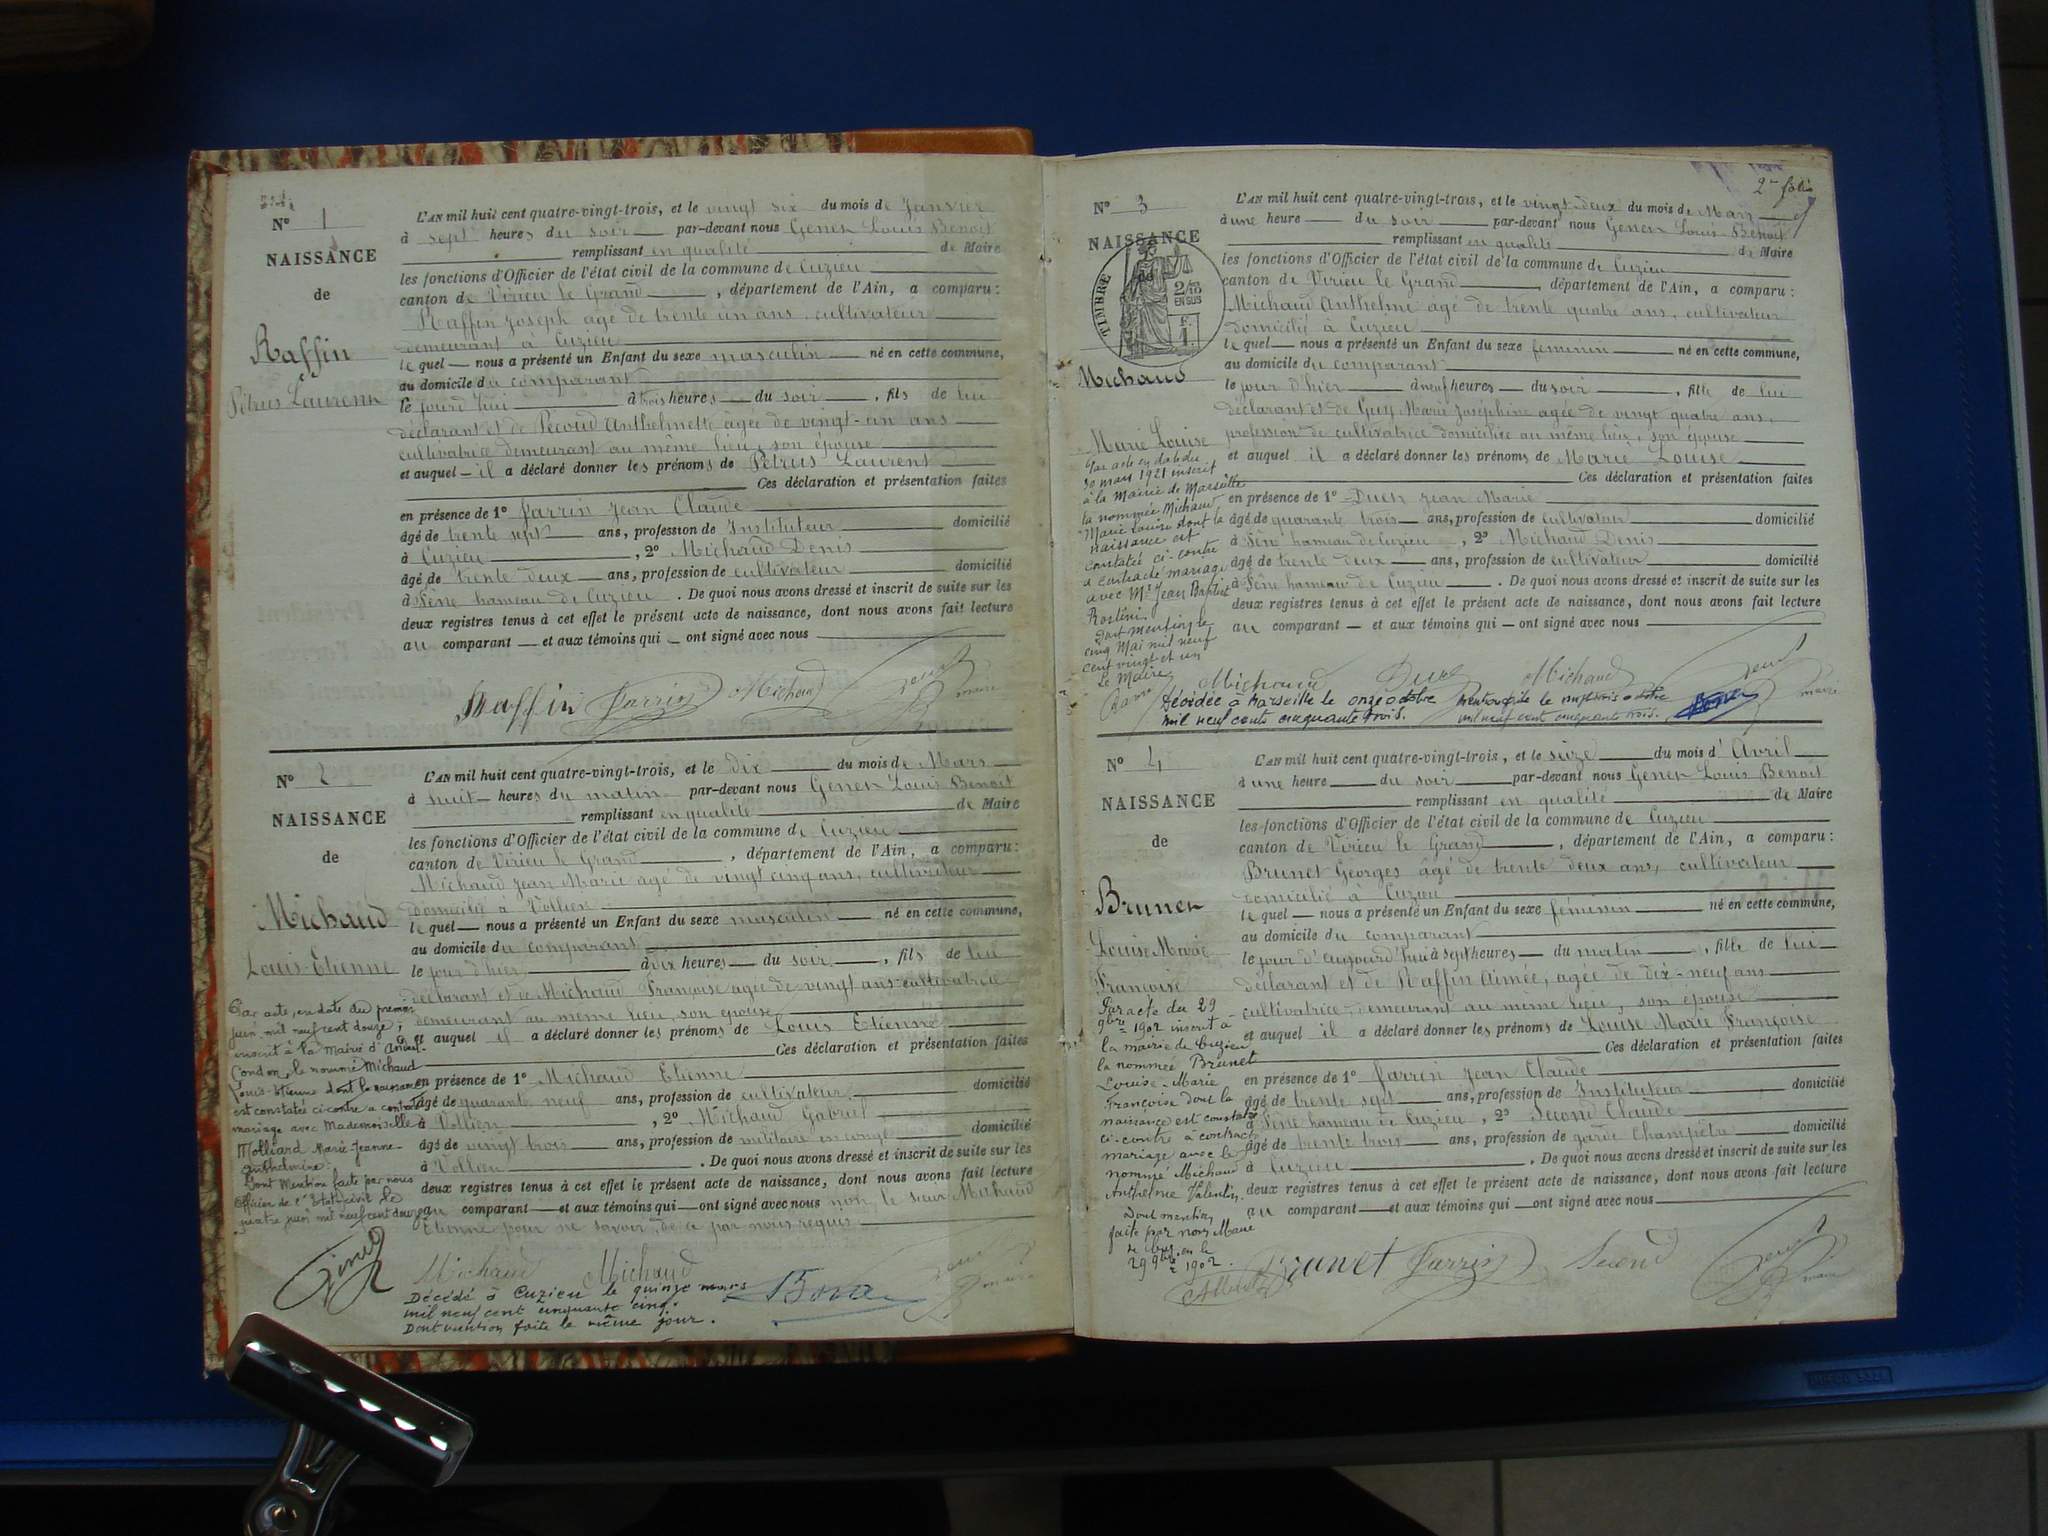 N° 1
NAISSANCE
de
Raffin
Pétrus Laurent
L'AN mil huit cent quatre-vingt-trois, et le vingt six du mois de Janvier
à sept heures du soir par-devant nous Genet Louis Benoit
remplissant en qualité de Maire
les fonctions d'Officier de l'état civil de la commune de Cuzieu
canton de Virieu le Grand, département de l'Ain, a comparu:
Raffin Joseph âgé de trente un ans, cultivateur
demeurant à Cuzieu
lequel nous a présenté un Enfant du sexe masculin né en cette commune,
au domicile du comparant
le jourd'hui à trois heures du soir, fils de lui
déclarant et de Pecoud Anthelmette âgée de vingt-un ans
cultivatrice demeurant au même lieu, son épouse
et auquel il a déclaré donner les prénoms de Pétrus Laurent
Ces déclaration et présentation faites
en présence de 1° Jarrin Jean Claude
âgé de trente sept ans, profession de Instituteur domicilié
à Cuzieu, 2° Michaud Denis
âgé de trente deux ans, profession de cultivateur domicilié
à Sène hameau de Cuzieu. De quoi nous avons dressé et inscrit de suite sur les
deux registres tenus à cet effet le présent acte de naissance, dont nous avons fait lecture
au comparant et aux témoins qui ont signé avec nous
Raffin Jarrin Michaud Genet maire
N° 2
NAISSANCE
de
Michaud
Louis-Etienne
Par acte, en date du premier
juin mil neuf cent douze,
inscrit à la Mairie d'
Condon, le nommé Michaud
Louis-Etienne dont la naissance
est constatée ci-contre a contracté
mariage avec Mademoiselle
Molliard Marie-Jeanne-
Anthelmine.
Dont Mention faite par nous
Officier de l'Etat-civil le
quatre juin mil neuf cent douze
L'AN mil huit cent quatre-vingt-trois, et le dix du mois de Mars
à huit heures du matin par-devant nous Genet Louis Benoit
remplissant en qualité de Maire
les fonctions d'Officier de l'état civil de la commune de Cuzieu
canton de Virieu le Grand, département de l'Ain, a comparu:
Michaud Jean Marie âgé de vingt cinq ans, cultivateur
domicilié à Vollien
lequel nous a présenté un Enfant du sexe masculin né en cette commune,
au domicile du comparant
le jour d'hier à dix heures du soir, fils de lui
déclarant et de Michaud Françoise âgée de vingt ans cultivatrice
demeurant au même lieu, son épouse
et auquel il a déclaré donner les prénoms de Louis Etienne
Ces déclaration et présentation faites
en présence de 1° Michaud Etienne
âgé de quarante neuf ans, profession de cultivateur domicilié
à Vollien, 2° Michaud Gabriel
âgé de vingt trois ans, profession de militaire en congé domicilié
à Vollien. De quoi nous avons dressé et inscrit de suite sur les
deux registres tenus à cet effet le présent acte de naissance, dont nous avons fait lecture
au comparant et aux témoins qui ont signé avec nous non le sieur Michaud
Etienne pour ne savoir, de ce par nous requis
Michaud Michaud Genet maire
Décédé à Cuzieu le quinze mars
mil neuf cent cinquante cinq.
Dont mention faite le même jour.
2me folio
N° 3
NAISSANCE
de
TIMBRE
2/10
EN SUS
F.
1
Michaud
Marie Louise
Par acte en date du
30 mars 1921 inscrit
à la Mairie de Marseille
la nommée Michaud
Marie Louise dont la
naissance est
constatée ci-contre
a contracté mariage
avec Mr Jean Baptiste
Rostini.
Dont mention le
cinq Mai mil neuf
cent vingt et un
Le Maire
L'AN mil huit cent quatre-vingt-trois, et le vingt-deux du mois de Mars
à une heure du soir par-devant nous Genet Louis Benoit
remplissant en qualité de Maire
les fonctions d'Officier de l'état civil de la commune de Cuzieu
canton de Virieu le Grand, département de l'Ain, a comparu:
Michaud Anthelme âgé de trente quatre ans, cultivateur
domicilié à Cuzieu
lequel nous a présenté un Enfant du sexe féminin né en cette commune,
au domicile du comparant
le jour d'hier à neuf heures du soir, fille de lui
déclarant et de Guy Marie Joséphine âgée de vingt quatre ans,
profession de cultivatrice domiciliée au même lieu, son épouse
et auquel il a déclaré donner les prénoms de Marie Louise
Ces déclaration et présentation faites
en présence de 1° Jean Marie
âgé de quarante trois ans, profession de cultivateur domicilié
à Sène hameau de Cuzieu, 2° Michaud Denis
âgé de trente deux ans, profession de cultivateur domicilié
à Sène hameau de Cuzieu. De quoi nous avons dressé et inscrit de suite sur les
deux registres tenus à cet effet le présent acte de naissance, dont nous avons fait lecture
au comparant et aux témoins qui ont signé avec nous
Michaud Michaud Genet maire
Décédée à Marseille le onze octobre
mil neuf cent cinquante trois.
mention faite le octobre
mil neuf cent cinquante trois.
N° 4
NAISSANCE
de
Brunet
Louise Marie
Françoise
Par acte du 29
9bre 1902 inscrit à
la mairie de Cuzieu
la nommée Brunet
Louise-Marie
Françoise dont la
naissance est constatée
ci-contre a contracté
mariage avec le
nommé Michaud
Anthelme Valentin.
Dont mention
faite par nous Maire
de Cuzieu le
29 9bre 1902.
L'AN mil huit cent quatre-vingt-trois, et le seize du mois d'Avril
à une heure du soir par-devant nous Genet Louis Benoit
remplissant en qualité de Maire
les fonctions d'Officier de l'état civil de la commune de Cuzieu
canton de Virieu le Grand, département de l'Ain, a comparu:
Brunet Georges âgé de trente deux ans, cultivateur
domicilié à Cuzieu
lequel nous a présenté un Enfant du sexe féminin né en cette commune,
au domicile du comparant
le jour d'aujourd'hui à sept heures du matin, fille de lui
déclarant et de Raffin Aimée, agée de dix-neuf ans
cultivatrice, demeurant au même lieu, son épouse
et auquel il a déclaré donner les prénoms de Louise Marie Françoise
Ces déclaration et présentation faites
en présence de 1° Jarrin Jean Claude
âgé de trente sept ans, profession de Instituteur domicilié
à Sène hameau de Cuzieu, 2° Second Claude
âgé de trente trois ans, profession de garde Champêtre domicilié
à Cuzieu. De quoi nous avons dressé et inscrit de suite sur les
deux registres tenus à cet effet le présent acte de naissance, dont nous avons fait lecture
au comparant et aux témoins qui ont signé avec nous
Brunet Jarrin Second Genet maire